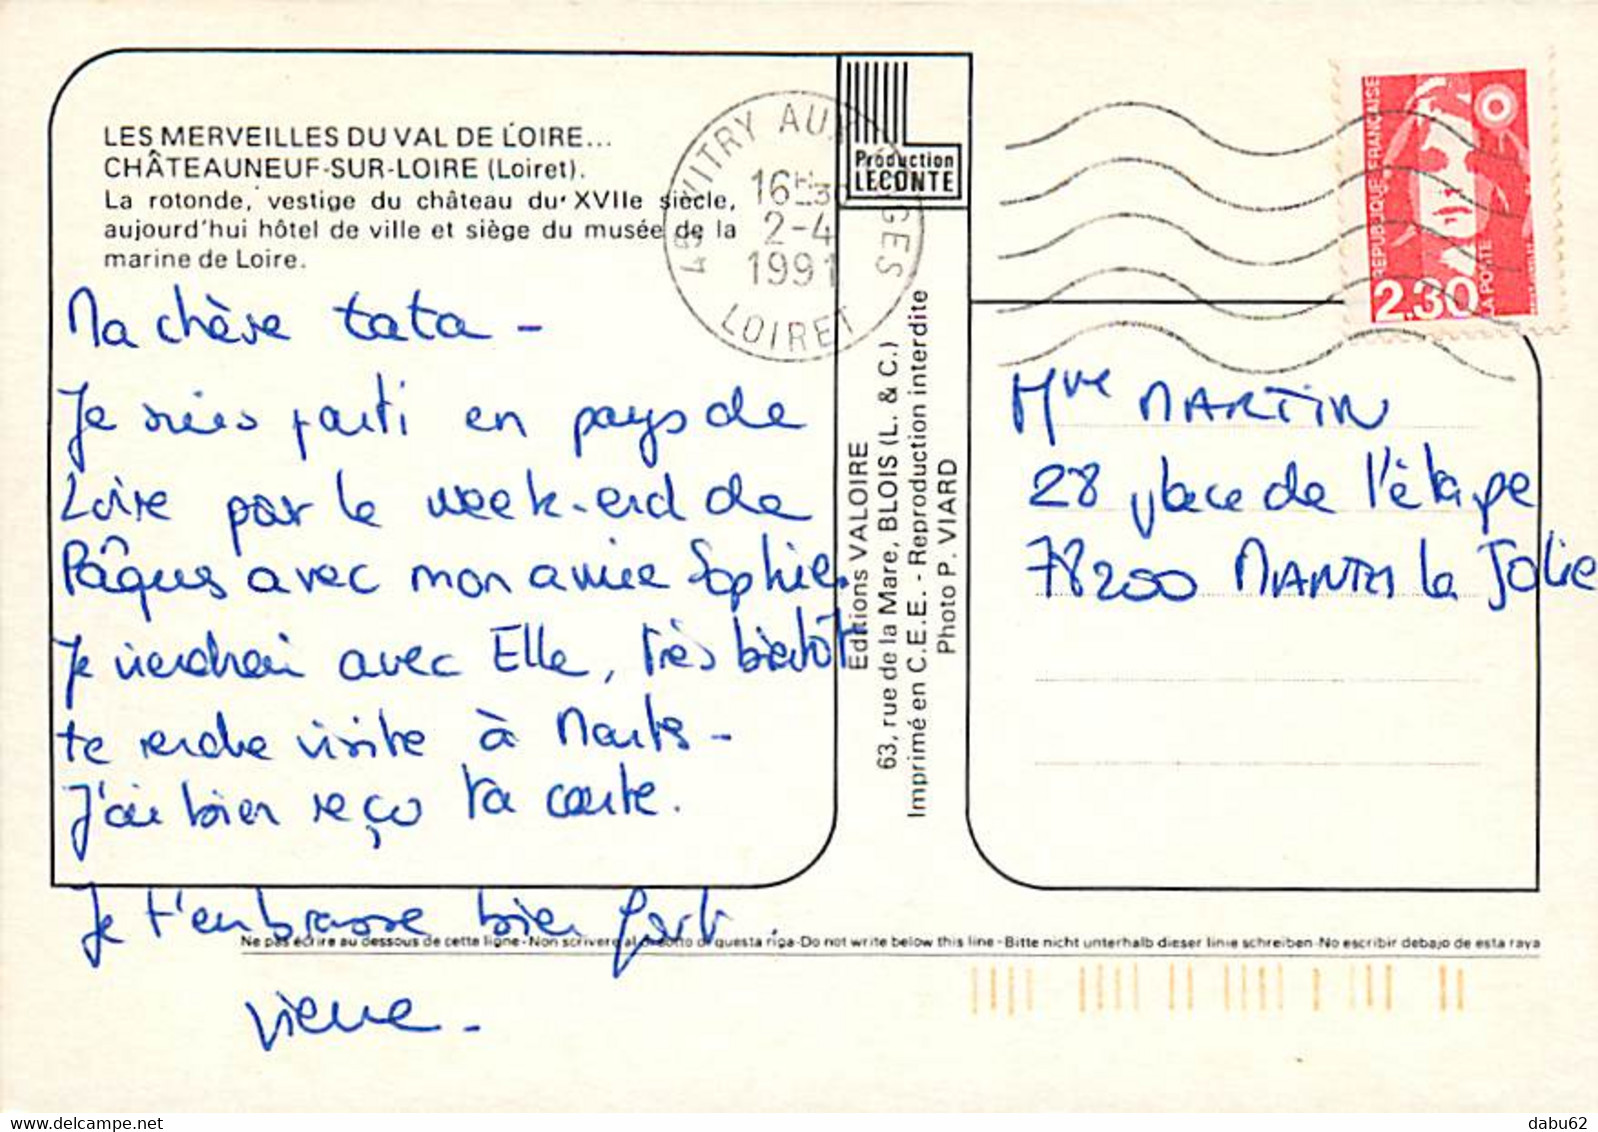 LES MERVEILLES DU VAL DE LOIRE...
CHÂTEAUNEUF-SUR-LOIRE (Loiret).
La rotonde, vestige du château du XVIIe siècle,
aujourd'hui hôtel de ville et siège du musée de la
marine de Loire.
Ma chère tata -
Je suis parti en pays de
Loire par le week-end de
Pâques avec mon amie Sophie.
Je viendrai avec Elle, très bientôt
te rendre visite à Mantes -
J'ai bien reçu ta carte.
Je t'embrasse bien fort.
Pierre -
45 VITRY AUX LOGES
16H30
2-4
1991
LOIRET
Production
LECONTE
Editions VALOIRE
63, rue de la Mare, BLOIS (L. & C.)
Imprimé en C.E.E. - Reproduction interdite
Photo P. VIARD
REPUBLIQUE FRANÇAISE
2.30
LA POSTE
Mme MARTIN
28 place de l'étape
78200 MANTES la Jolie
Ne pas écrire au dessous de cette ligne - Non scrivere al di sotto di questa riga - Do not write below this line - Bitte nicht unterhalb dieser linie schreiben - No escribir debajo de esta raya
dabu62